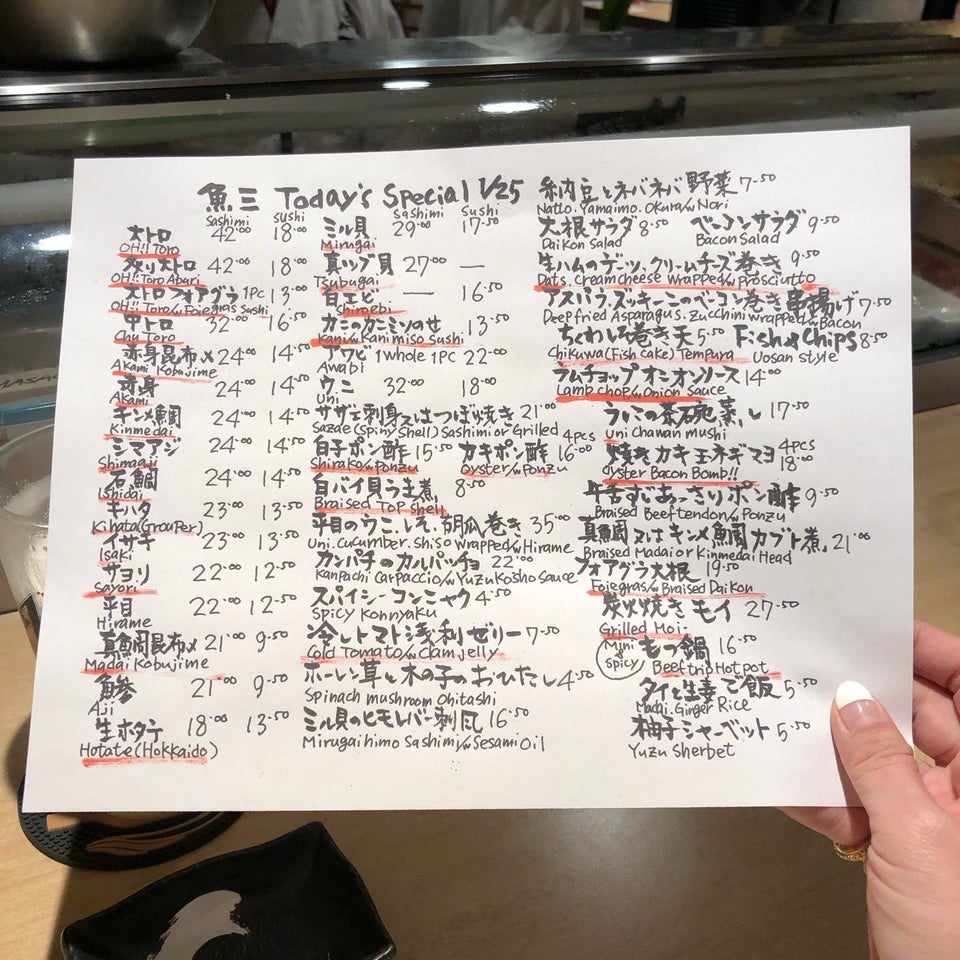 魚三 Today's Special 1/25
Sashimi Sushi
大トロ 42.00 18.00
OH!! Toro
炙り大トロ 42.00 18.00
OH! Toro Aburi
大トロフォアグラ 1pc 13.00
OH!! Toro w/Foiegras Sushi
中トロ 32.00 16.50
Chu Toro
赤身昆布〆 24.00 14.50
Akami Kobujime
赤身 24.00 14.50
Akami
キンメ鯛 24.00 14.50
Kinmedai
シマアジ 24.00 14.50
Shimaaji
石鯛 24.00 14.50
Ishidai
キハタ 23.00 13.50
Kihata (Grouper)
イサキ 23.00 13.50
Isaki
サヨリ 22.00 12.50
Sayori
平目 22.00 12.50
Hirame
真鯛昆布〆 21.00 9.50
Madai Kobujime
鯵 21.00 9.50
Aji
生ホタテ 18.00 13.50
Hotate (Hokkaido)
Sashimi Sushi
ミル貝 29.00 17.50
Mirugai
真ツブ貝 27.00 —
Tsubugai
白エビ — 16.50
Shiroebi
カニのカニミソのせ 13.50
Kani w/Kanimiso Sushi
アワビ 1whole 1PC 22.00
Awabi
ウニ 32.00 18.00
Uni
サザエ刺身又はつぼ焼き 21.00
Sazae (Spiny Shell) Sashimi or Grilled
白子ポン酢 15.50 カキポン酢 4pcs 16.00
Shirako w/Ponzu oyster w/Ponzu
白バイ貝うま煮 8.50
Braised Top Shell
平目のウニ、しそ、胡瓜巻き 35.00
Uni. Cucumber. Shiso wrapped w/Hirame
カンパチのカルパッチョ 22.00
Kanpachi Carpaccio w/Yuzu Kosho Sauce
スパイシーコンニャク 4.50
Spicy Konnyaku
冷しトマト浅利ゼリー 7.50
Cold Tomato w/Clam jelly
ホーレン草と木の子のおひたし 4.50
Spinach mushroom Ohitashi
ミル貝のヒモレバー刺風 16.50
Mirugai himo Sashimi w/Sesami Oil
納豆とネバネバ野菜 7.50
Natto. Yamaimo. Okura w/Nori
大根サラダ 8.50 ベーコンサラダ 9.50
Daikon Salad Bacon Salad
生ハムのデーツ、クリームチーズ巻き 9.50
Dats. Creamcheese wrapped w/Prosciutto
アスパラ、ズッキーニのベーコン巻き串揚げ 7.50
Deep fried Asparagus. Zucchini wrapped w/Bacon
ちくわしそ巻き天 5.50 Fish & Chips 8.50
Chikuwa (Fish cake) Tempura Uosan style
ラムチョップオニオンソース 14.00
Lamb chop w/Onion Sauce
うにの茶碗蒸し 17.50
Uni Chawan mushi
焼きカキ玉ネギマヨ 4pcs 18.00
oyster Bacon Bomb!!
牛舌すじあっさりポン酢 9.50
Braised Beef tendon w/Ponzu
真鯛又はキンメ鯛カブト煮 21.00
Braised Madai or Kinmedai Head
フォアグラ大根 19.50
Foiegras w/Braised Daikon
炭火焼きモイ 27.50
Grilled Moi
Mini Spicy もつ鍋 16.50
Beef trip Hot pot
タイと生姜ご飯 5.50
Madai. Ginger Rice
柚子シャーベット 5.50
Yuzu Sherbet